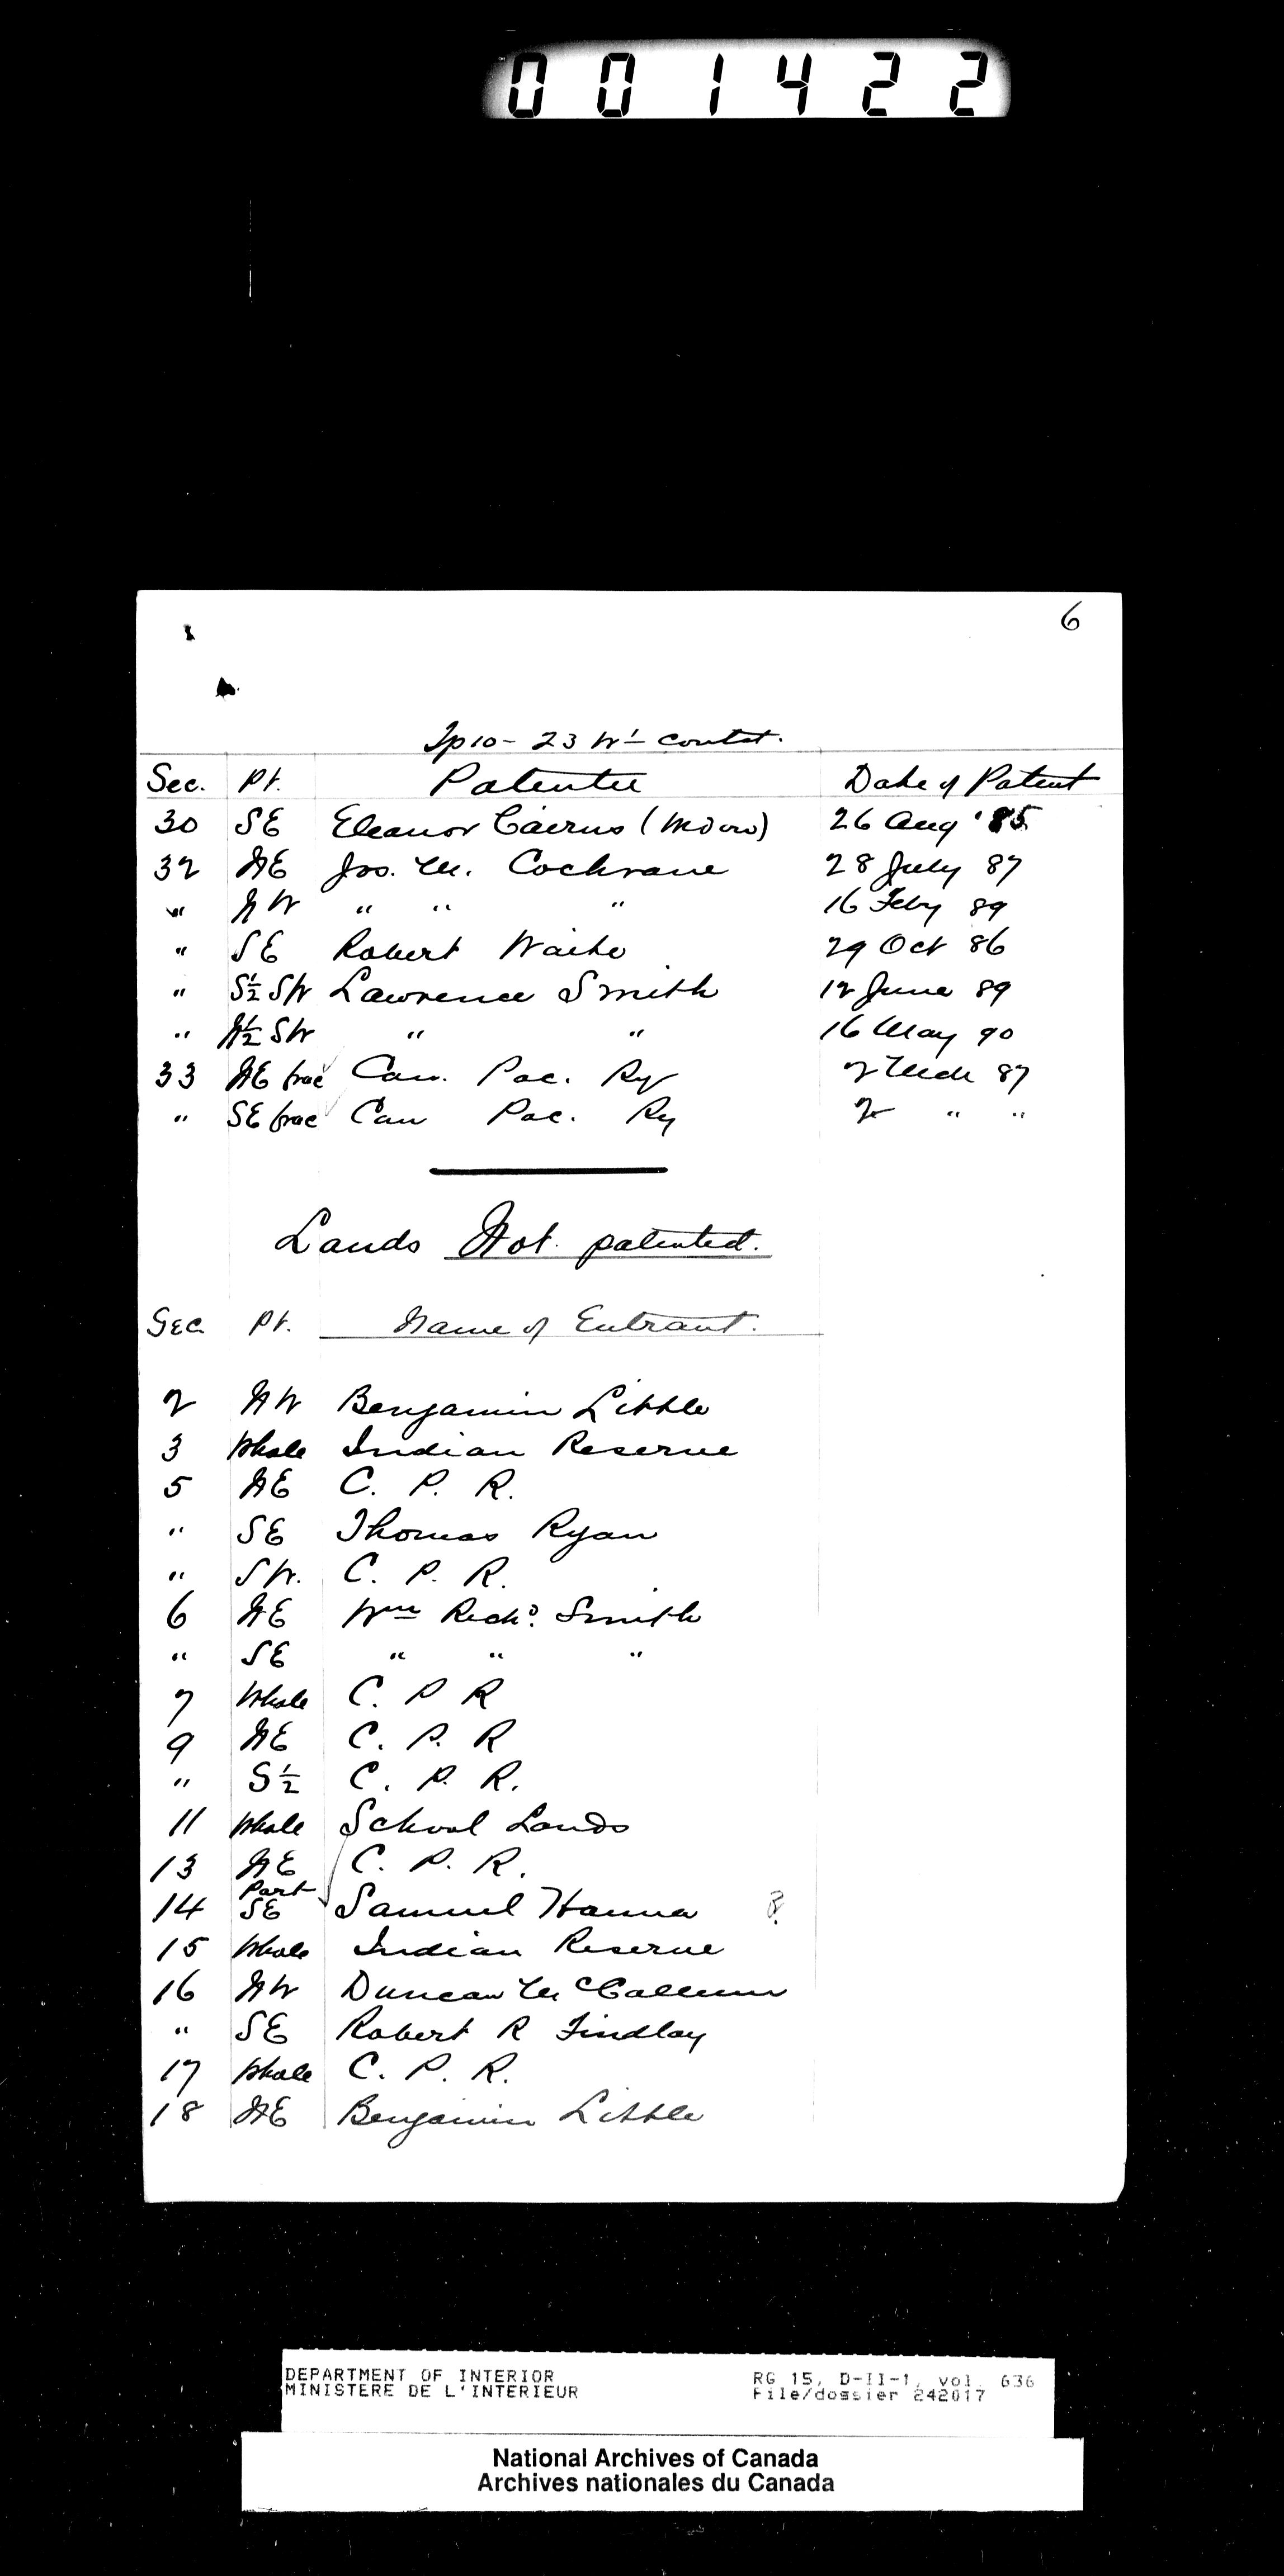 001422
6
Tp 10 - 23 W1 contd.
Sec. Pt. Patentee Date of Patent
30 SE Eleanor Cairns (Widow) 26 Aug '85
32 NE Jos. M. Cochrane 28 July 87
" NW " " " 16 Feby 89
" SE Robert Waite 29 Oct 86
" S½ SW Lawrence Smith 12 June 89
" N½ SW " " 16 May 90
33 NE frac Can. Pac. Ry 2 Mch 87
" SE frac Can Pac. Ry 2 " "
Lands Not patented.
Sec. Pt. Name of Entrant.
2 NW Benjamin Little
3 Whole Indian Reserve
5 NE C. P. R.
" SE Thomas Ryan
" SW. C. P. R.
6 NE Wm Richd. Smith
" SE " " "
7 Whole C. P R
9 NE C. P. R
" S½ C. P. R.
11 Whole School Lands
13 NE C. P. R.
14 Part SE Samuel Hanna ?
15 Whole Indian Reserve
16 NW Duncan McCallum
" SE Robert R Findlay
17 Whole C. P. R.
18 NE Benjamin Little
DEPARTMENT OF INTERIOR RG 15, D-II-1, vol. 636
MINISTERE DE L'INTERIEUR File/dossier 242017
National Archives of Canada
Archives nationales du Canada